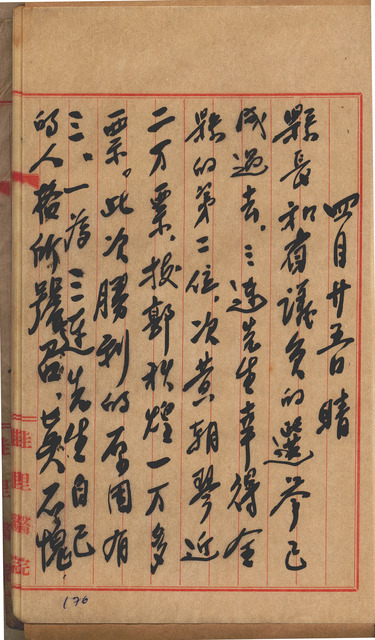 四月廿五日 晴
縣長和省議員的選舉已
成過去。三連先生幸得全
縣的第二位、次黃朝琴近
二万票、郭秋煌一万多
票。此次勝利的原因有
三、一為三連先生自己
的人格所號召、真不愧
佳里醫院
176